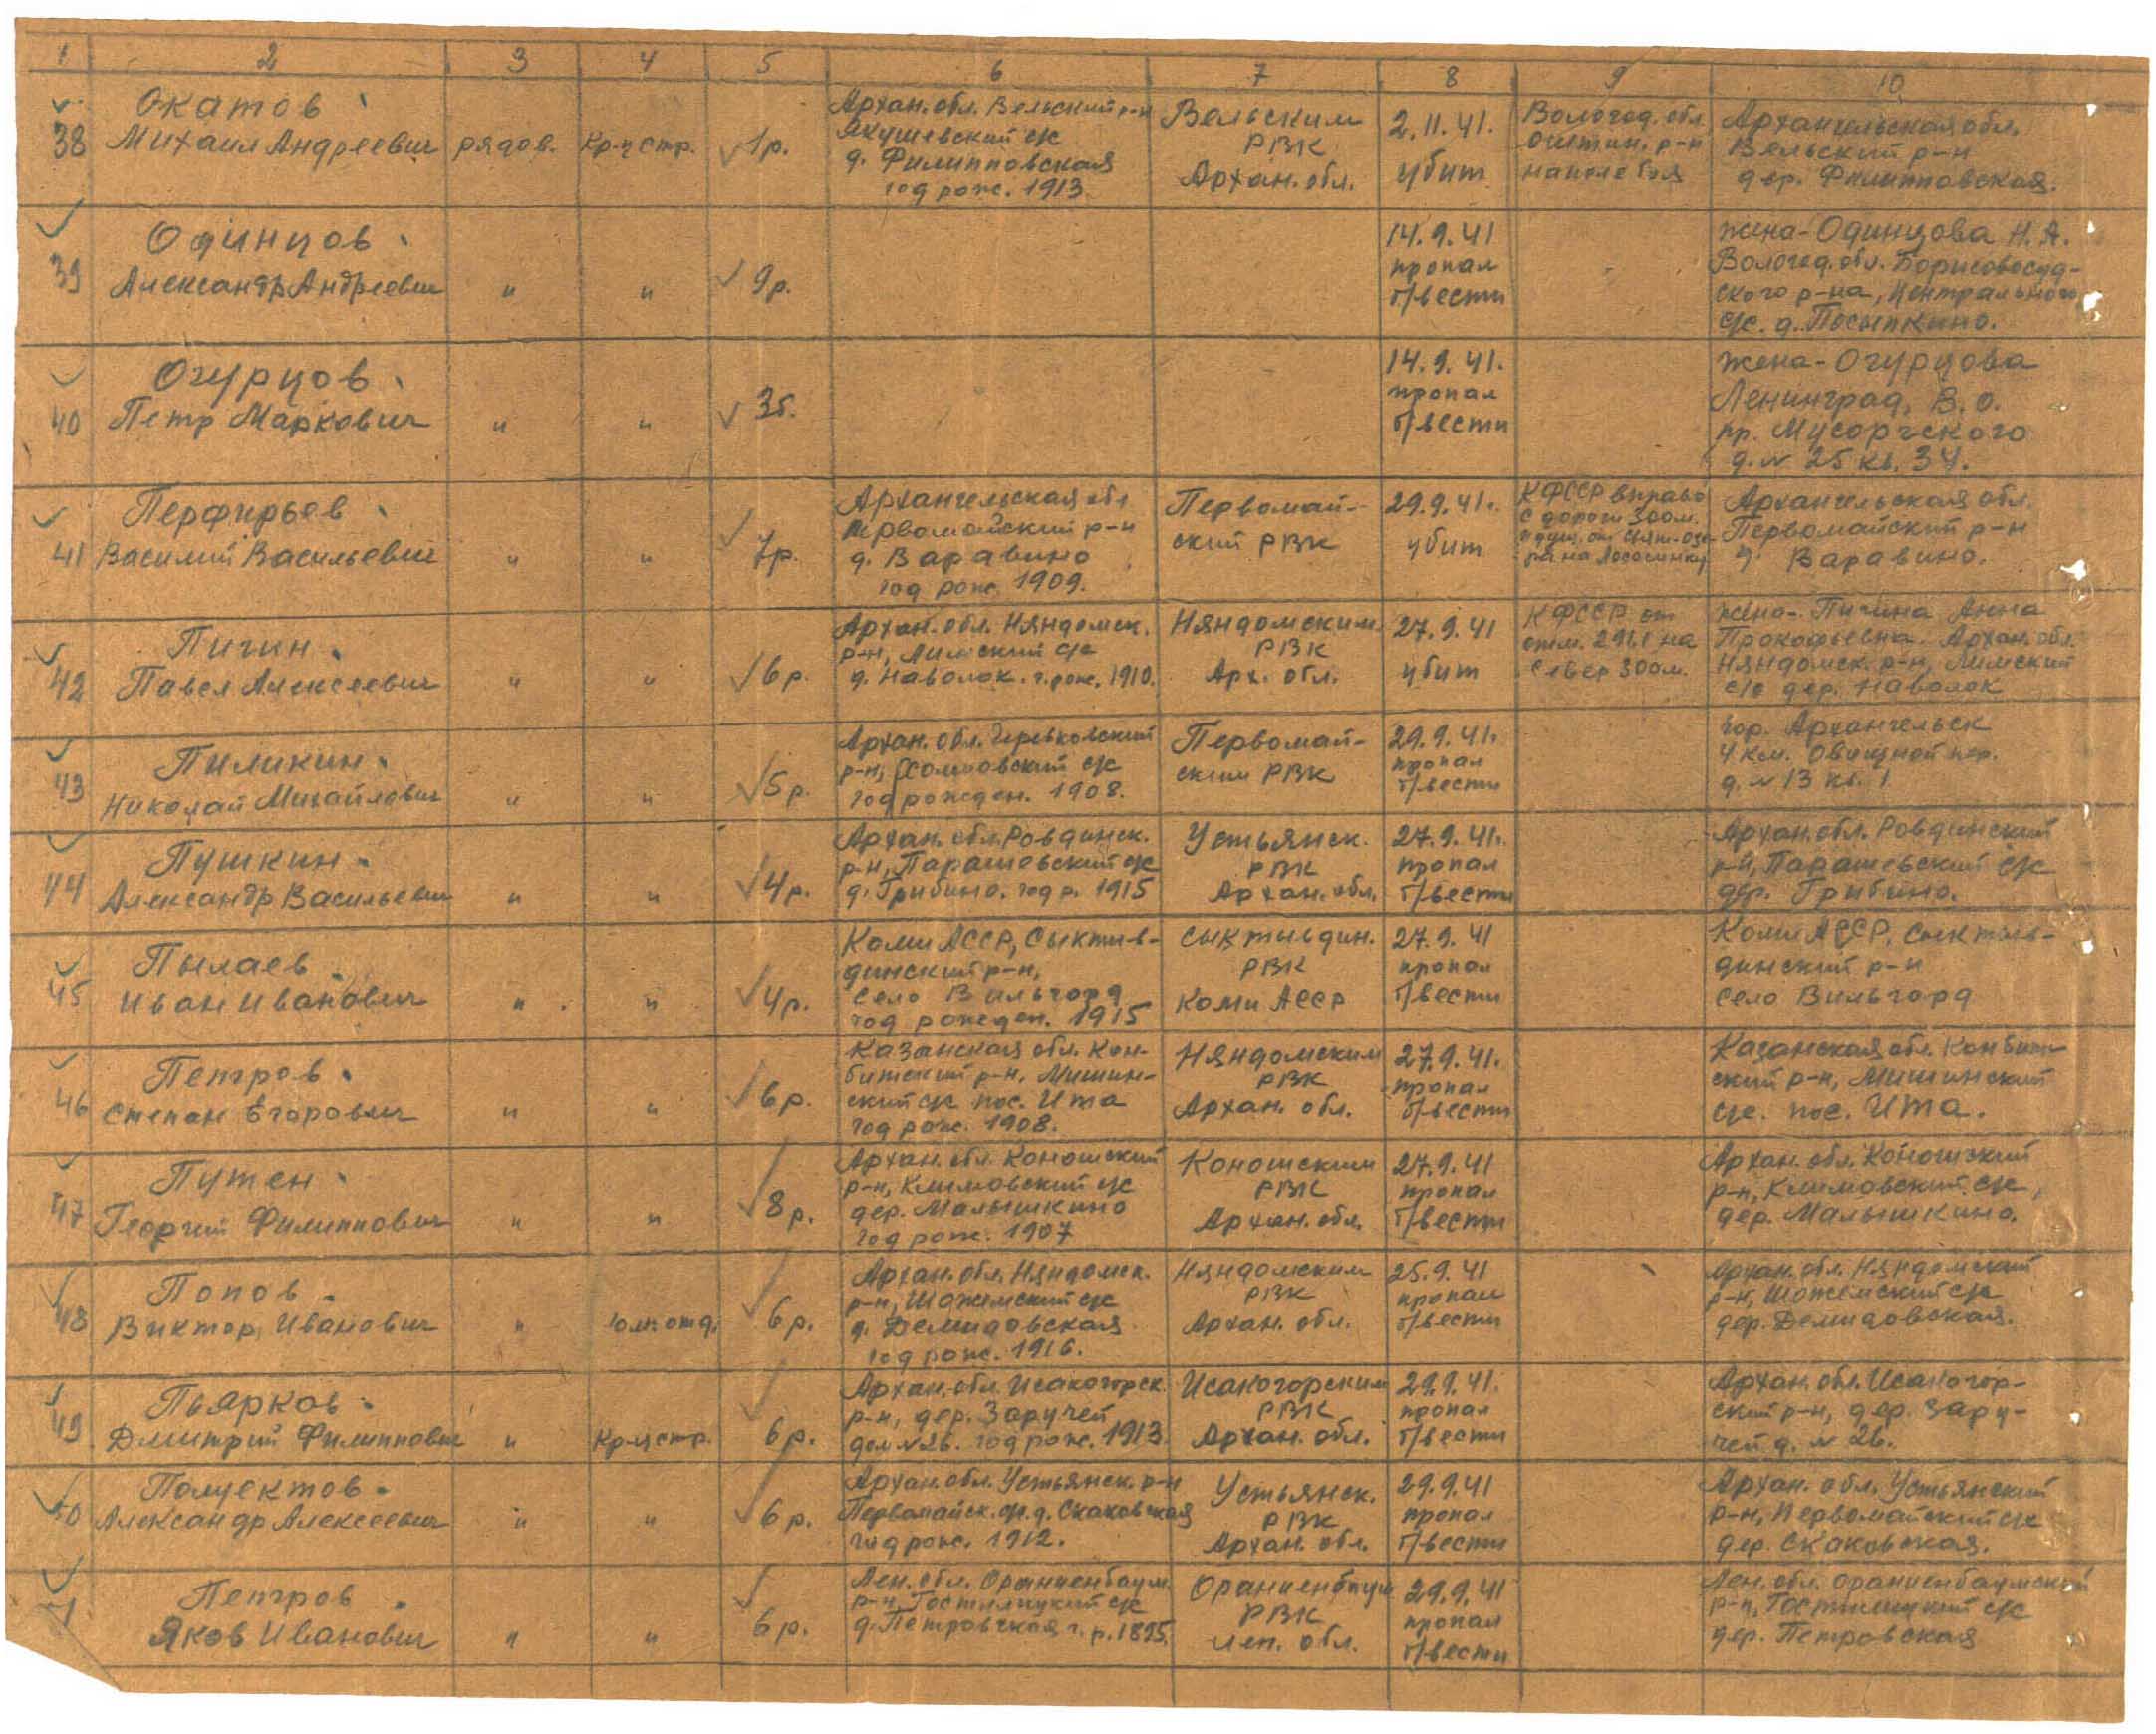 1 2 3 4 5 6 7 8 9 10
38
Окатов
Михаил Андреевич
рядов.
Кр-ц стр.
1р.
Архан. обл. Вельский р-н
Якушевский с/с
д. Филипповская
год рож. 1913.
Вельским
РВК
Архан. обл.
2.11.41.
убит
Вологод. обл.
Оштин. р-н
на поле боя
Архангельская обл.
Вельский р-н
дер. Филипповская.
39
Одинцов
Александр Андреевич
"
"
9р.
14.9.41
пропал
б/вести
жена - Одинцова Н. А.
Вологод. обл. Борисовосуд-
ского р-на, Центрального
с/с. д. Посыпкино.
40
Огурцов
Петр Маркович
"
"
3б.
14.9.41.
пропал
б/вести
жена - Огурцова
Ленинград, В. О.
пр. Мусоргского
д. № 25 кв. 34.
41
Перфирьев
Василий Васильевич
"
"
7р.
Архангельская обл
Первомайский р-н
д. Варавино
год рож. 1909.
Первомай-
ский РВК
29.9.41.
убит
КФССР вправо
с дороги 300м.
идущ. от Свят-озе-
ра на Лососинку
Архангельская обл.
Первомайский р-н
д. Варавино.
42
Пигин
Павел Алексеевич
"
"
6р.
Архан. обл. Няндомск.
р-н, Лимский с/с
д. Наволок. г. рож. 1910.
Няндомским
РВК
Арх. обл.
27.9.41
убит
КФССР от
отм. 296.1 на
север 300м.
жена - Пигина Анна
Прокофьевна. Архан. обл.
Няндомск. р-н, Лимский
с/с дер. Наволок
43
Пиликин
Николай Михайлович
"
"
5р.
Архан. обл. Черевковский
р-н, с/с
год рожден. 1908.
Первомай-
ским РВК
29.9.41.
пропал
б/вести
гор. Архангельск
4 км. Овощной пер.
д. № 13 кв. 1
44
Пушкин
Александр Васильевич
"
"
4р.
Архан. обл. Ровдинск.
р-н, Парашевский с/с
д. Грибино. год р. 1915
Устьянск.
РВК
Архан. обл.
27.9.41.
пропал
б/вести
Архан. обл. Ровдинский
р-н, Парашевский с/с
дер. Грибино.
45
Пылаев
Иван Иванович
"
"
4р.
Коми АССР, Сыктив-
динский р-н,
село Вильгорд
год рожден. 1915
Сыктивдин.
РВК
Коми АССР
27.9.41
пропал
б/вести
Коми АССР, Сыктив-
динский р-н
село Вильгорд
46
Петров
Степан Егорович
"
"
6р.
Казанская обл. Кон-
битский р-н, Мишин-
ский с/с пос. Ита
год рож. 1908.
Няндомским
РВК
Архан. обл.
27.9.41.
пропал
б/вести
Казанская обл. Конбит-
ский р-н, Мишинский
с/с. пос. Ита.
47
Путен
Георгий Филиппович
"
"
8р.
Архан. обл. Коношский
р-н, Климовский с/с
дер. Малышкино
год рож. 1907
Коношским
РВК
Архан. обл.
27.9.41
пропал
б/вести
Архан. обл. Коношский
р-н, Климовский с/с,
дер. Малышкино.
48
Попов
Виктор Иванович
"
ком. отд.
6р.
Архан. обл. Няндомск.
р-н, Шожемский с/с
д. Демидовская
год рож. 1916.
Няндомским
РВК
Архан. обл.
25.9.41
пропал
б/вести
Архан. обл. Няндомский
р-н, Шожемский с/с
дер. Демидовская.
49
Пьярков
Дмитрий Филиппович
"
Кр-ц стр.
6р.
Архан. обл. Исакогорск.
р-н, дер. Заручей
дом № 26. год рож. 1913.
Исакогорским
РВК
Архан. обл.
29.9.41.
пропал
б/вести
Архан. обл. Исакогор-
ский р-н, дер. Зару-
чей д. № 26.
50
Полуектов
Александр Алексеевич
"
"
6р.
Архан. обл. Устьянск. р-н
Первомайск. с/с. д. Скаковская
год рож. 1912.
Устьянск.
РВК
Архан. обл.
29.9.41
пропал
б/вести
Архан. обл. Устьянский
р-н, Первомайский с/с
дер. Скаковская.
Петров
Яков Иванович
"
"
6р.
Лен. обл. Ораниенбаум.
р-н, Гостилицкий с/с
д. Петровская г. р. 1895.
Ораниенбаум
РВК
Лен. обл.
29.9.41
пропал
б/вести
Лен. обл. Ораниенбаумский
р-н, Гостилицкий с/с
дер. Петровская